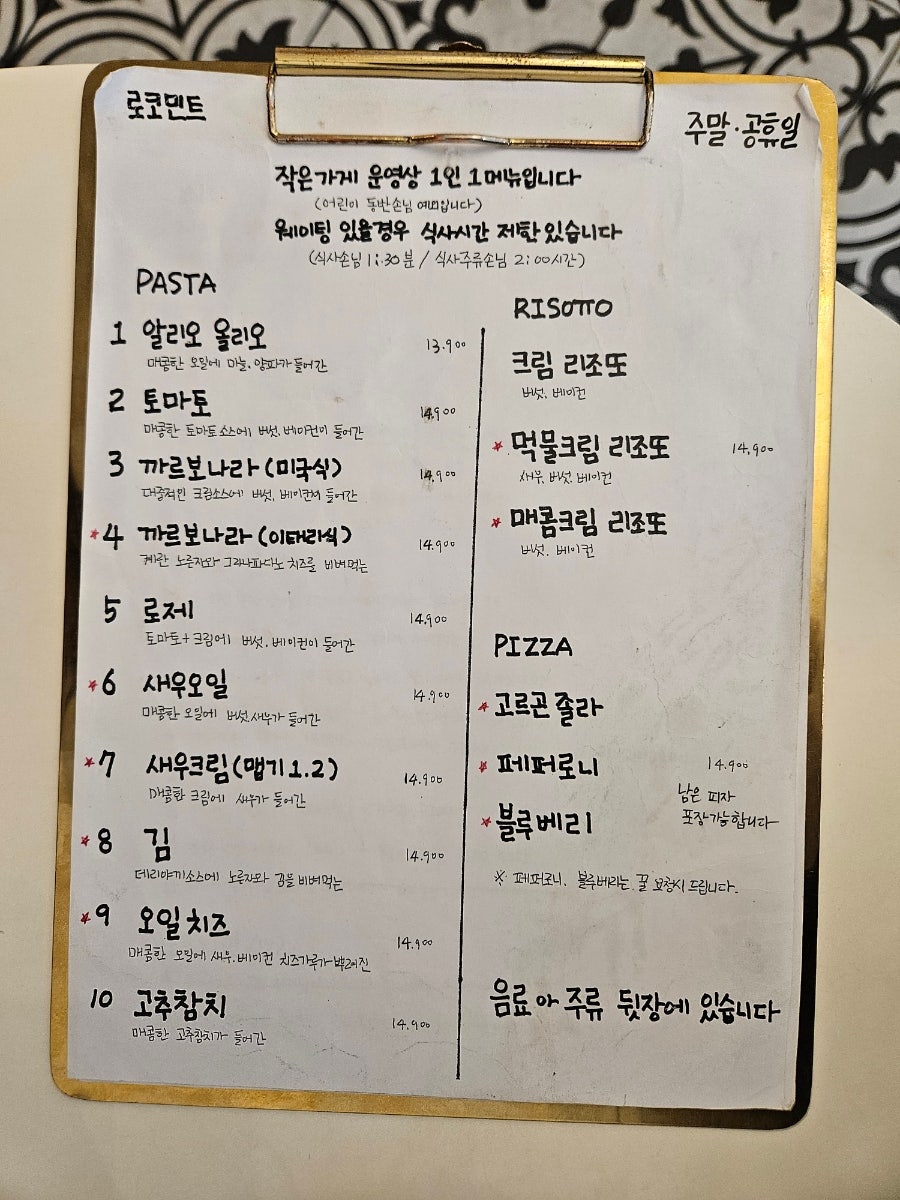 로코민트
주말·공휴일
작은가게 운영상 1인 1메뉴입니다
(어린이 동반손님 예외입니다)
웨이팅 있을경우 식사시간 제한 있습니다
(식사손님 1:30분 / 식사주류손님 2:00시간)
PASTA
1 알리오 올리오 13.900
매콤한 오일에 마늘, 양파가 들어간
2 토마토 14.900
매콤한 토마토소스에 버섯, 베이컨이 들어간
3 까르보나라 (미국식) 14.900
대중적인 크림소스에 버섯, 베이컨이 들어간
★4 까르보나라 (이태리식) 14.900
계란 노른자와 그라나파다노 치즈를 비벼먹는
5 로제 14.900
토마토+크림에 버섯, 베이컨이 들어간
★6 새우오일 14.900
매콤한 오일에 버섯, 새우가 들어간
★7 새우크림(맵기 1.2) 14.900
매콤한 크림에 새우가 들어간
★8 김 14.900
데리야끼소스에 노른자와 김을 비벼먹는
★9 오일치즈 14.900
매콤한 오일에 새우, 베이컨 치즈가루가 뿌려진
10 고추참치 14.900
매콤한 고추참치가 들어간
RISOTTO
크림 리조또
버섯, 베이컨
★먹물크림 리조또 14.900
새우, 버섯, 베이컨
★매콤크림 리조또
버섯, 베이컨
PIZZA
★고르곤졸라
★페퍼로니 14.900
남은 피자
포장가능합니다
★블루베리
※ 페퍼로니, 블루베리는 꿀 요청시 드립니다.
음료 아 주류 뒷장에 있습니다